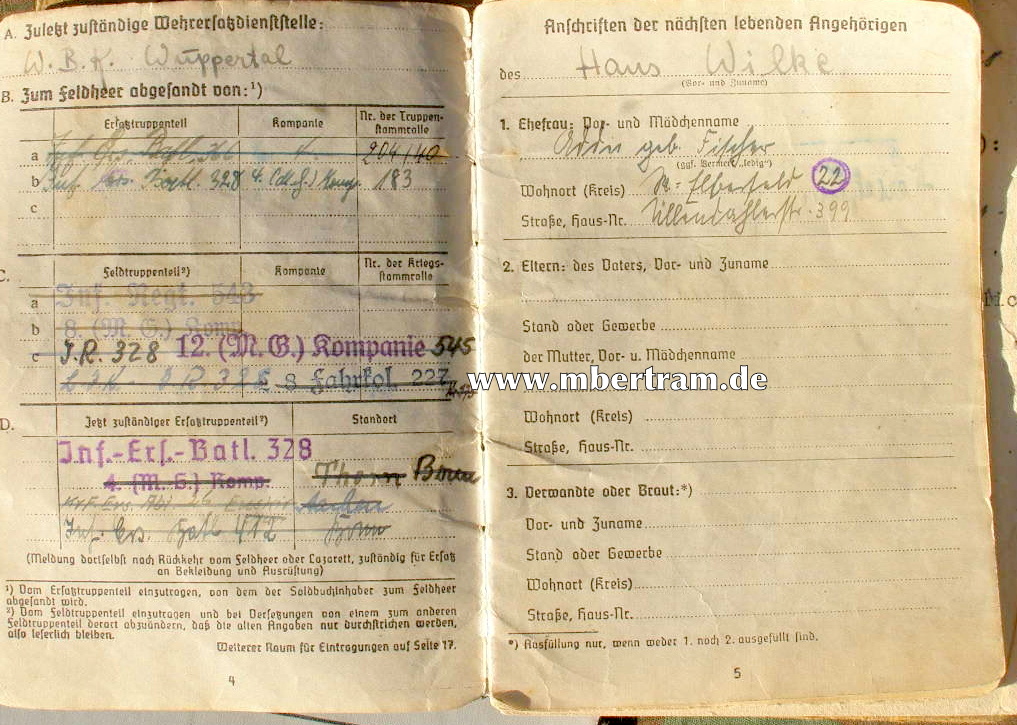 A. Zuletzt zuständige Wehrersatzdienststelle:
W.B.K. Wuppertal
B. Zum Feldheer abgesandt von:¹)
Ersatztruppenteil Kompanie Nr. der Truppen-
stammrolle
a 204/40
b Inf. Ers. Batl. 328 4. 183
c
C. Feldtruppenteil²) Kompanie Nr. der Kriegs-
stammrolle
a Inf. Regt. 543
b 8. (M. G.) Komp.
c J.R. 328 12. (M.G.) Kompanie 545
8 Fahrkol. 227
D. Jetzt zuständiger Ersatztruppenteil²) Standort
Inf.-Ers.-Batl. 328
4. (M. G.) Komp. Thorn Bonn
Krf. Ers. Abt. Aachen
Inf. Ers. Batl 472 Bonn
(Meldung dortselbst nach Rückkehr vom Feldheer oder Lazarett, zuständig für Ersatz
an Bekleidung und Ausrüstung)
¹) Vom Ersatztruppenteil einzutragen, von dem der Soldbuchinhaber zum Feldheer
abgesandt wird.
²) Vom Feldtruppenteil einzutragen und bei Versetzungen von einem zum anderen
Feldtruppenteil derart abzuändern, daß die alten Angaben nur durchstrichen werden,
also leserlich bleiben.
Weiterer Raum für Eintragungen auf Seite 17.
4
Anschriften der nächsten lebenden Angehörigen
des Hans Wilke
(Vor- und Zuname)
1. Ehefrau: Vor- und Mädchenname
geb. Fischer
(ggf. Vermerk „ledig")
Wohnort (Kreis) W.-Elberfeld 22
Straße, Haus-Nr. Uellendahlerstr. 399
2. Eltern: des Vaters, Vor- und Zuname
Stand oder Gewerbe
der Mutter, Vor- u. Mädchenname
Wohnort (Kreis)
Straße, Haus-Nr.
3. Verwandte oder Braut:*)
Vor- und Zuname
Stand oder Gewerbe
Wohnort (Kreis)
Straße, Haus-Nr.
*) Ausfüllung nur, wenn weder 1. noch 2. ausgefüllt sind.
5
www.mbertram.de